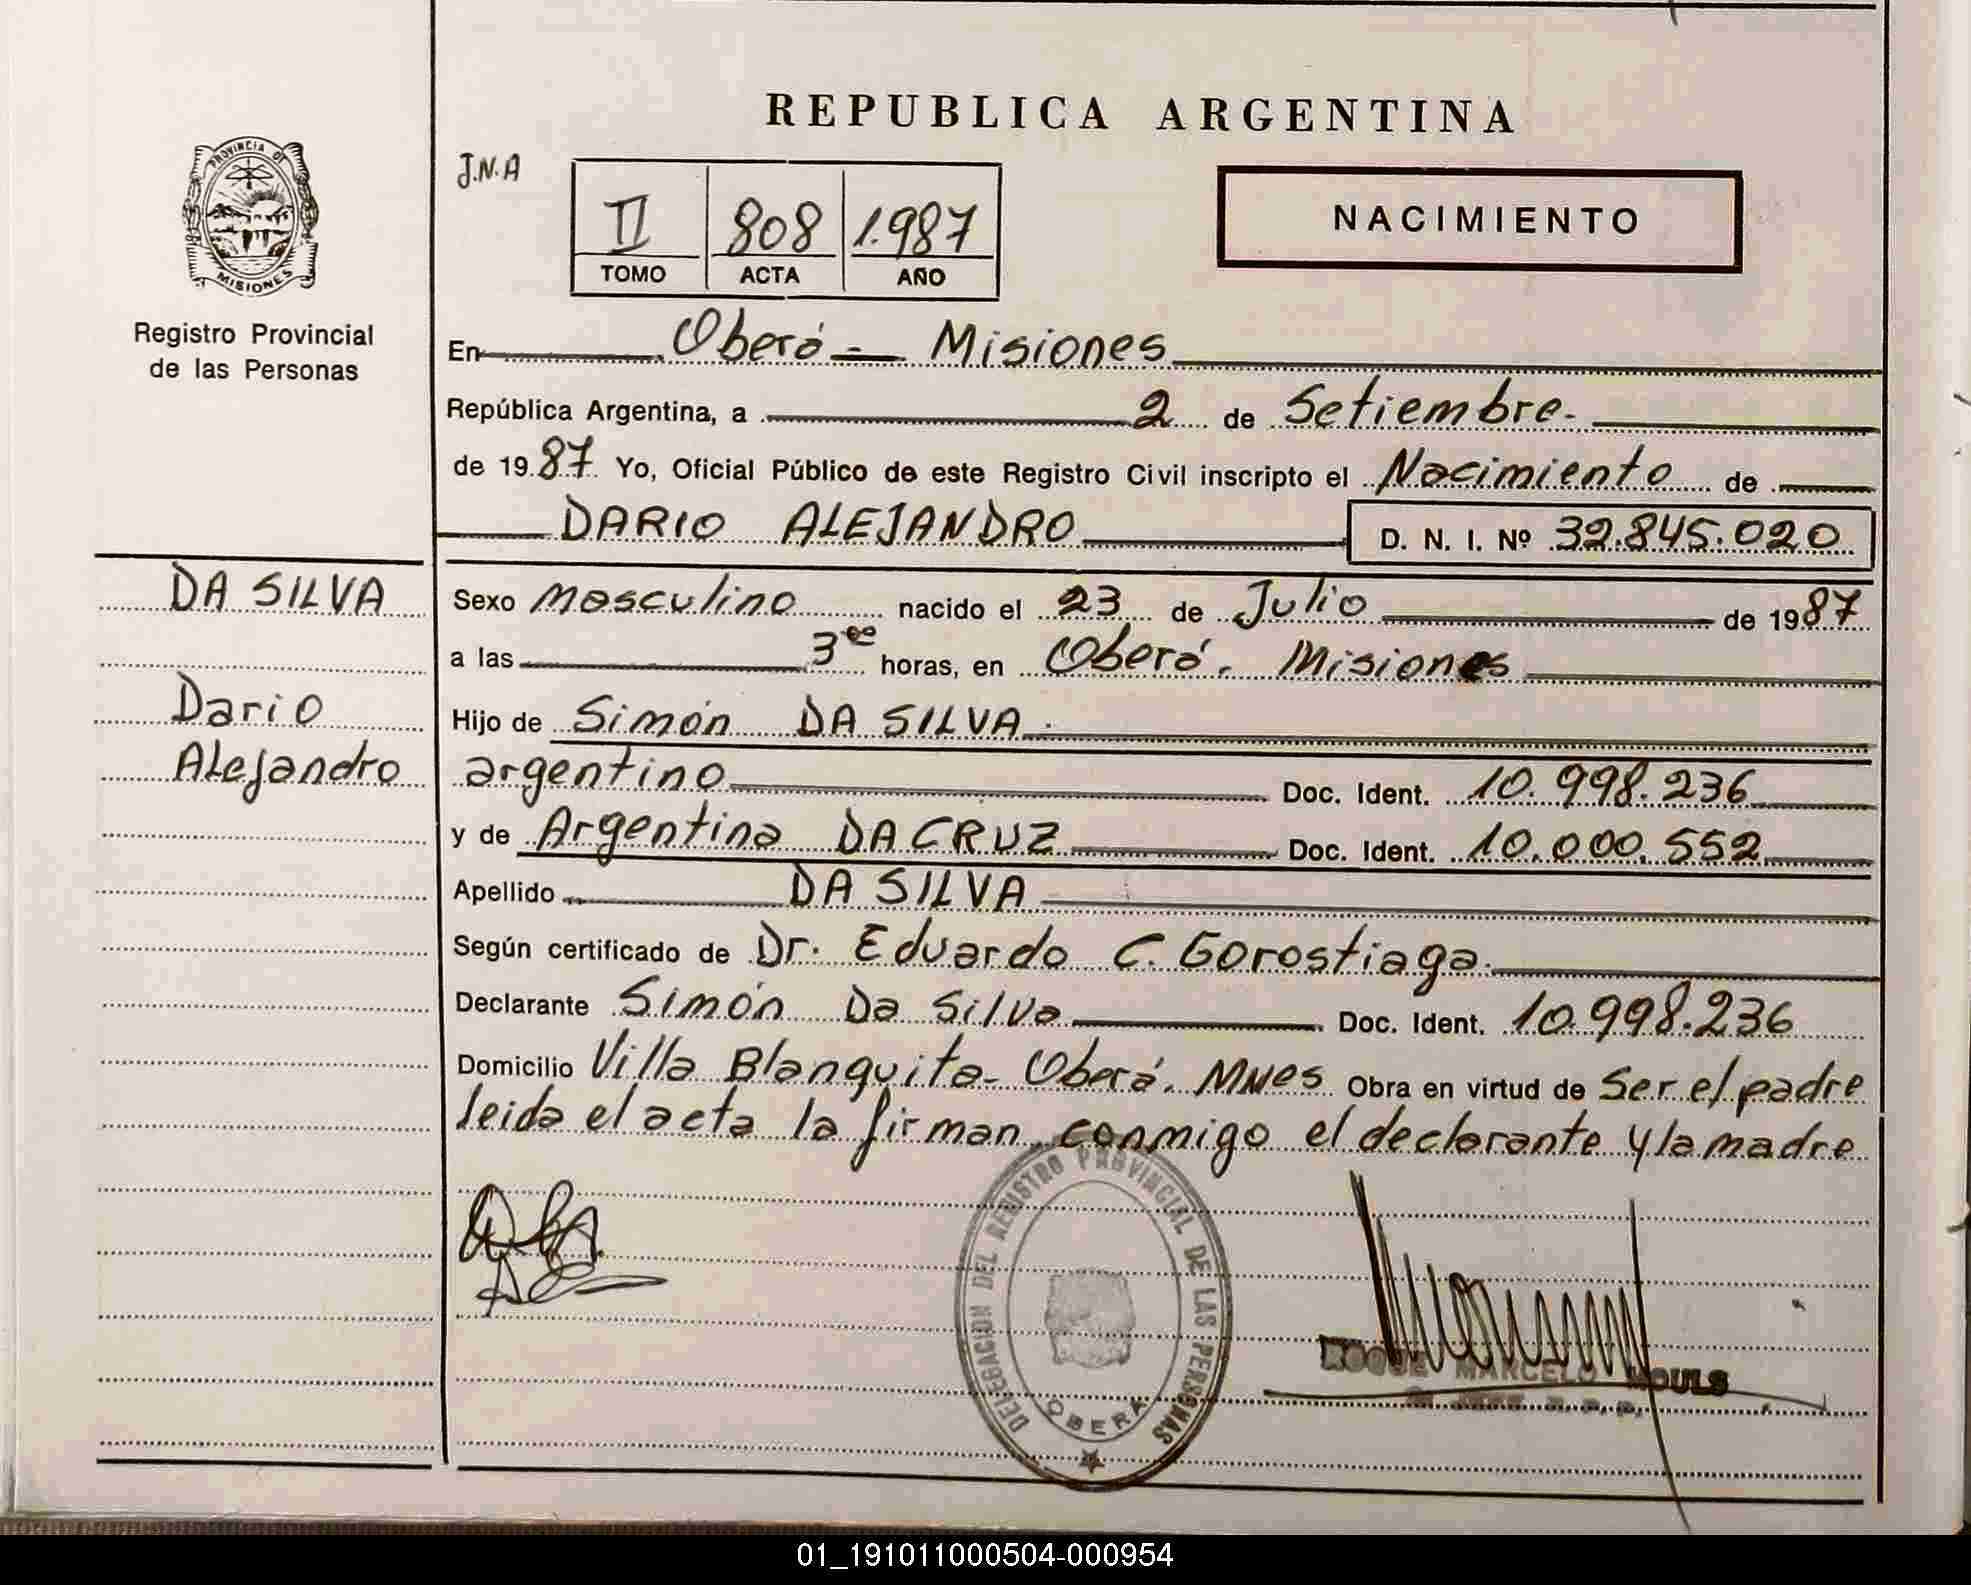 REPUBLICA ARGENTINA
PROVINCIA DE
MISIONES
Registro Provincial
de las Personas
J.N.A
II 808 1.987
TOMO ACTA AÑO
NACIMIENTO
En Oberá - Misiones
República Argentina, a 2 de Setiembre.
de 1987 Yo, Oficial Público de este Registro Civil inscripto el Nacimiento de
DARIO ALEJANDRO D. N. I. Nº 32.845.020
DA SILVA
Dario
Alejandro
Sexo masculino nacido el 23 de Julio de 1987
a las 3 horas, en Oberá. Misiones
Hijo de Simón DA SILVA.
argentino Doc. Ident. 10.998.236
y de Argentina DA CRUZ Doc. Ident. 10.000.552
Apellido DA SILVA
Según certificado de Dr. Eduardo C. Gorostiaga.
Declarante Simón Da Silva Doc. Ident. 10.998.236
Domicilio Villa Blanquita- Oberá. Mnes Obra en virtud de Ser el padre
leida el acta la firman conmigo el declarante y la madre
DELEGACION DEL REGISTRO PROVINCIAL DE LAS PERSONAS
OBERA
ROQUE MARCELO MOULS
01_191011000504-000954